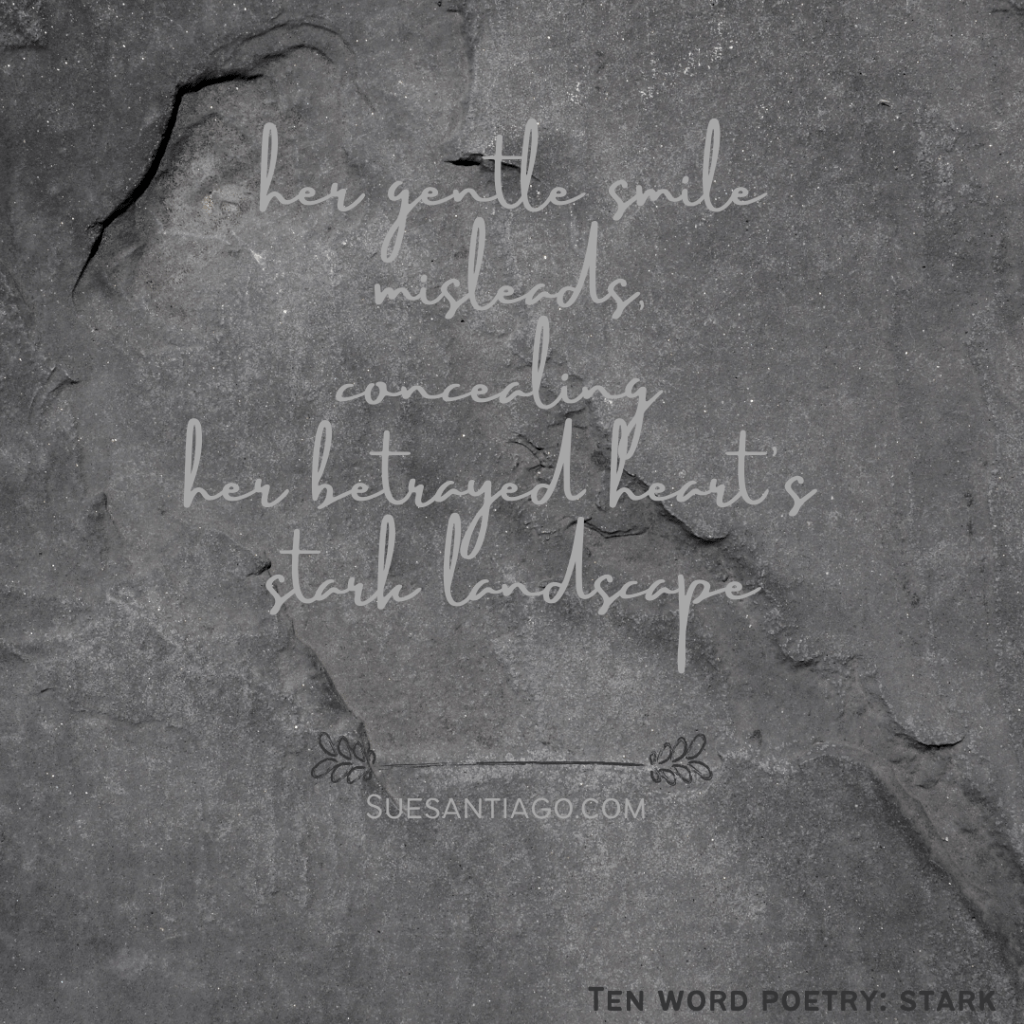 her gentle smile
misleads,
concealing
her betrayed heart's
stark landscape
Suesantiago.com
Ten word poetry: stark